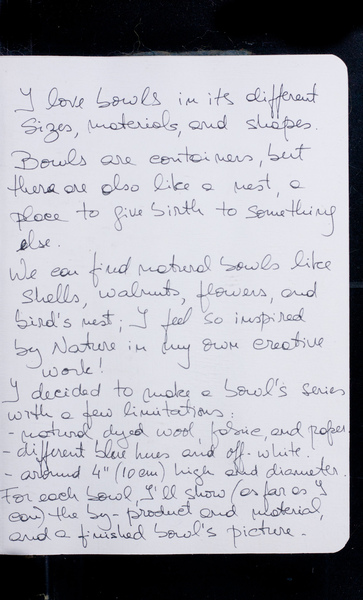 I love bowls in its different
sizes, materials, and shapes.
Bowls are containers, but
there are also like a nest, a
place to give birth to something
else.
We can find natural bowls like
shells, walnuts, flowers, and
bird's nest; I feel so inspired
by Nature in my own creative
work!
I decided to make a bowl's series
with a few limitations:
- natural, dyed wool, fabric, and paper
- different blue hues and off-white.
- around 4" (10 cm) high and diameter.
For each bowl, I'll show (as far as I
can) the by-product and material,
and a finished bowl's picture.